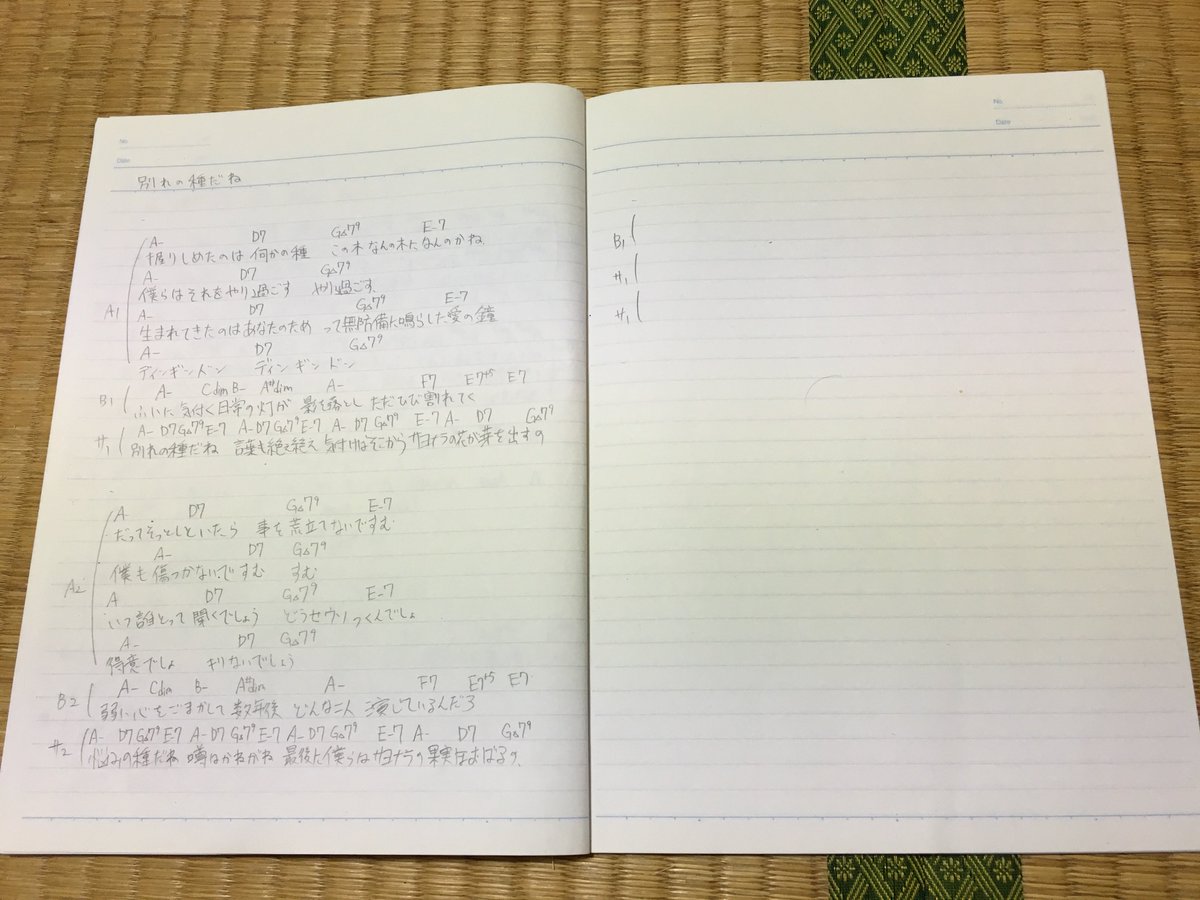 No.
Date
別れの種だね
A- D7 G△7⁹ E-7
握りしめたのは 何かの種 この木なんの木になんのかね
A- D7 G△7⁹
僕らはそれをやり過ごす やり過ごす
A1
A- D7 G△7⁹ E-7
生まれてきたのはあなたのため って無防備に鳴らした愛の鐘
A- D7 G△7⁹
ディンギンドン ディンギンドン
A- Cdim B- A#dim A- F7 E7+5 E7
B1 ふいに気付く日常の灯が 影を落とし ただひび割れてく
A- D7 G△7⁹ E-7 A- D7 G△7⁹ E-7 A- D7 G△7⁹ E-7 A- D7 G△7⁹
サ1 別れの種だね 言葉も絶え絶え 気付けばそこから サヨナラの花が芽を出すの
A- D7 G△7⁹ E-7
だってそっとしといたら 事を荒立てないですむ
A- D7 G△7⁹
僕も傷つかないですむ すむ
A2
A D7 G△7⁹ E-7
いつ誰とって聞くでしょう どうせウソつくんでしょ
A- D7 G△7⁹
得意でしょ キリないでしょう
A- Cdim B- A#dim A- F7 E7+5 E7
B2 弱い心をごまかして 数年後 どんな二人 演じているんだろ
A- D7 G△7⁹ E-7 A- D7 G△7⁹ E-7 A- D7 G△7⁹ E-7 A- D7 G△7⁹
サ2 悩みの種だね 噂はかねがね 最後に僕らはサヨナラの果実をほおばるの
No.
Date
B1
サ1
サ1